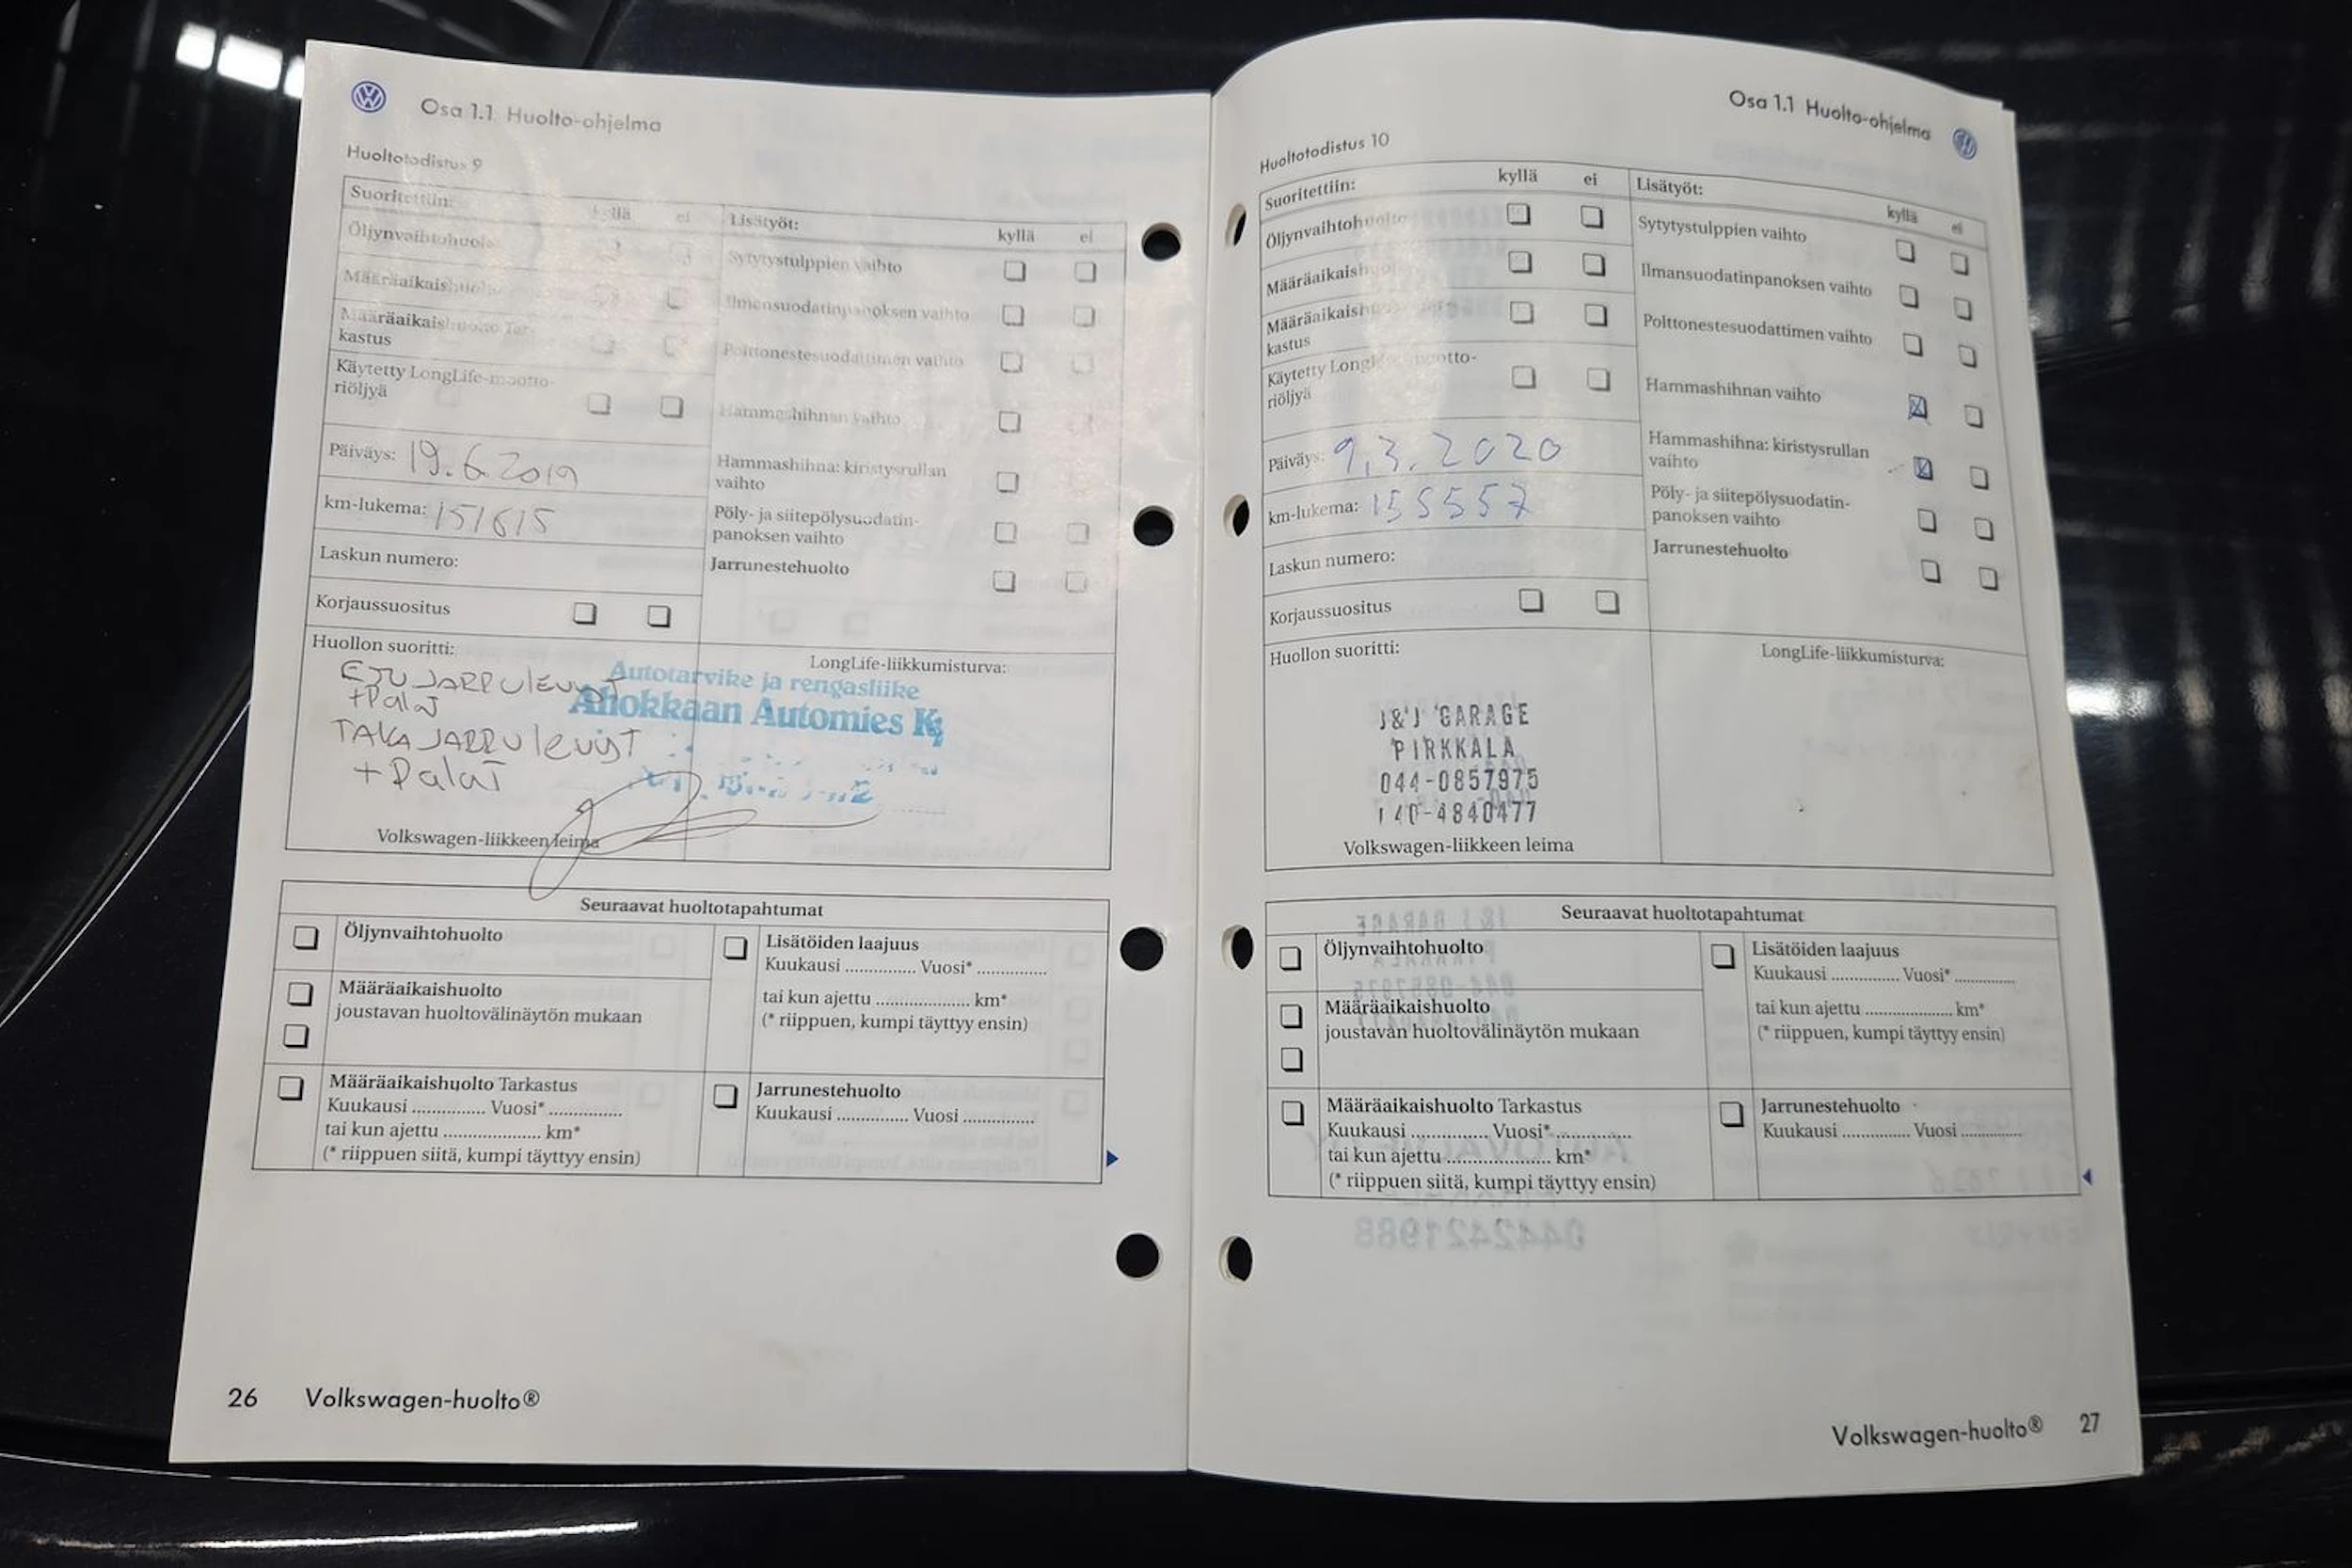 Osa 1.1 Huolto-ohjelma
Huoltotodistus 9
Suoritettiin:
kyllä ei
Öljynvaihtohuolto
Määräaikaishuolto
Määräaikaishuolto Tar-
kastus
Käytetty LongLife-mootto-
riöljyä
Päiväys: 19.6.2019
km-lukema: 151615
Laskun numero:
Korjaussuositus
Lisätyöt:
kyllä ei
Sytytystulppien vaihto
Ilmansuodatinpanoksen vaihto
Polttonestesuodattimen vaihto
Hammashihnan vaihto
Hammashihna: kiristysrullan
vaihto
Pöly- ja siitepölysuodatin-
panoksen vaihto
Jarrunestehuolto
Huollon suoritti:
ETU JARRUlevyt
+Palat
TAKA JARRU levyt
+Palat
LongLife-liikkumisturva:
Autotarvike ja rengasliike
Ahokkaan Automies Ky
Volkswagen-liikkeen leima
Seuraavat huoltotapahtumat
Öljynvaihtohuolto
Määräaikaishuolto
joustavan huoltovälinäytön mukaan
Määräaikaishuolto Tarkastus
Kuukausi ............... Vuosi* ...............
tai kun ajettu .................... km*
(* riippuen siitä, kumpi täyttyy ensin)
Lisätöiden laajuus
Kuukausi ............... Vuosi* ...............
tai kun ajettu .................... km*
(* riippuen, kumpi täyttyy ensin)
Jarrunestehuolto
Kuukausi ............... Vuosi ...............
26 Volkswagen-huolto®
Osa 1.1 Huolto-ohjelma
Huoltotodistus 10
Suoritettiin:
kyllä ei
Öljynvaihtohuolto
Määräaikaishuolto
Määräaikaishuolto
kastus
Käytetty LongLife-mootto-
riöljyä
Päiväys: 9.3.2020
km-lukema: 155557
Laskun numero:
Korjaussuositus
Lisätyöt:
kyllä ei
Sytytystulppien vaihto
Ilmansuodatinpanoksen vaihto
Polttonestesuodattimen vaihto
Hammashihnan vaihto
Hammashihna: kiristysrullan
vaihto
Pöly- ja siitepölysuodatin-
panoksen vaihto
Jarrunestehuolto
Huollon suoritti:
J&J GARAGE
PIRKKALA
044-0857975
040-4840477
Volkswagen-liikkeen leima
LongLife-liikkumisturva:
Seuraavat huoltotapahtumat
Öljynvaihtohuolto
Määräaikaishuolto
joustavan huoltovälinäytön mukaan
Määräaikaishuolto Tarkastus
Kuukausi ............... Vuosi* ...............
tai kun ajettu .................... km*
(* riippuen siitä, kumpi täyttyy ensin)
Lisätöiden laajuus
Kuukausi ............... Vuosi* ...............
tai kun ajettu .................... km*
(* riippuen, kumpi täyttyy ensin)
Jarrunestehuolto
Kuukausi ............... Vuosi ...............
Volkswagen-huolto® 27